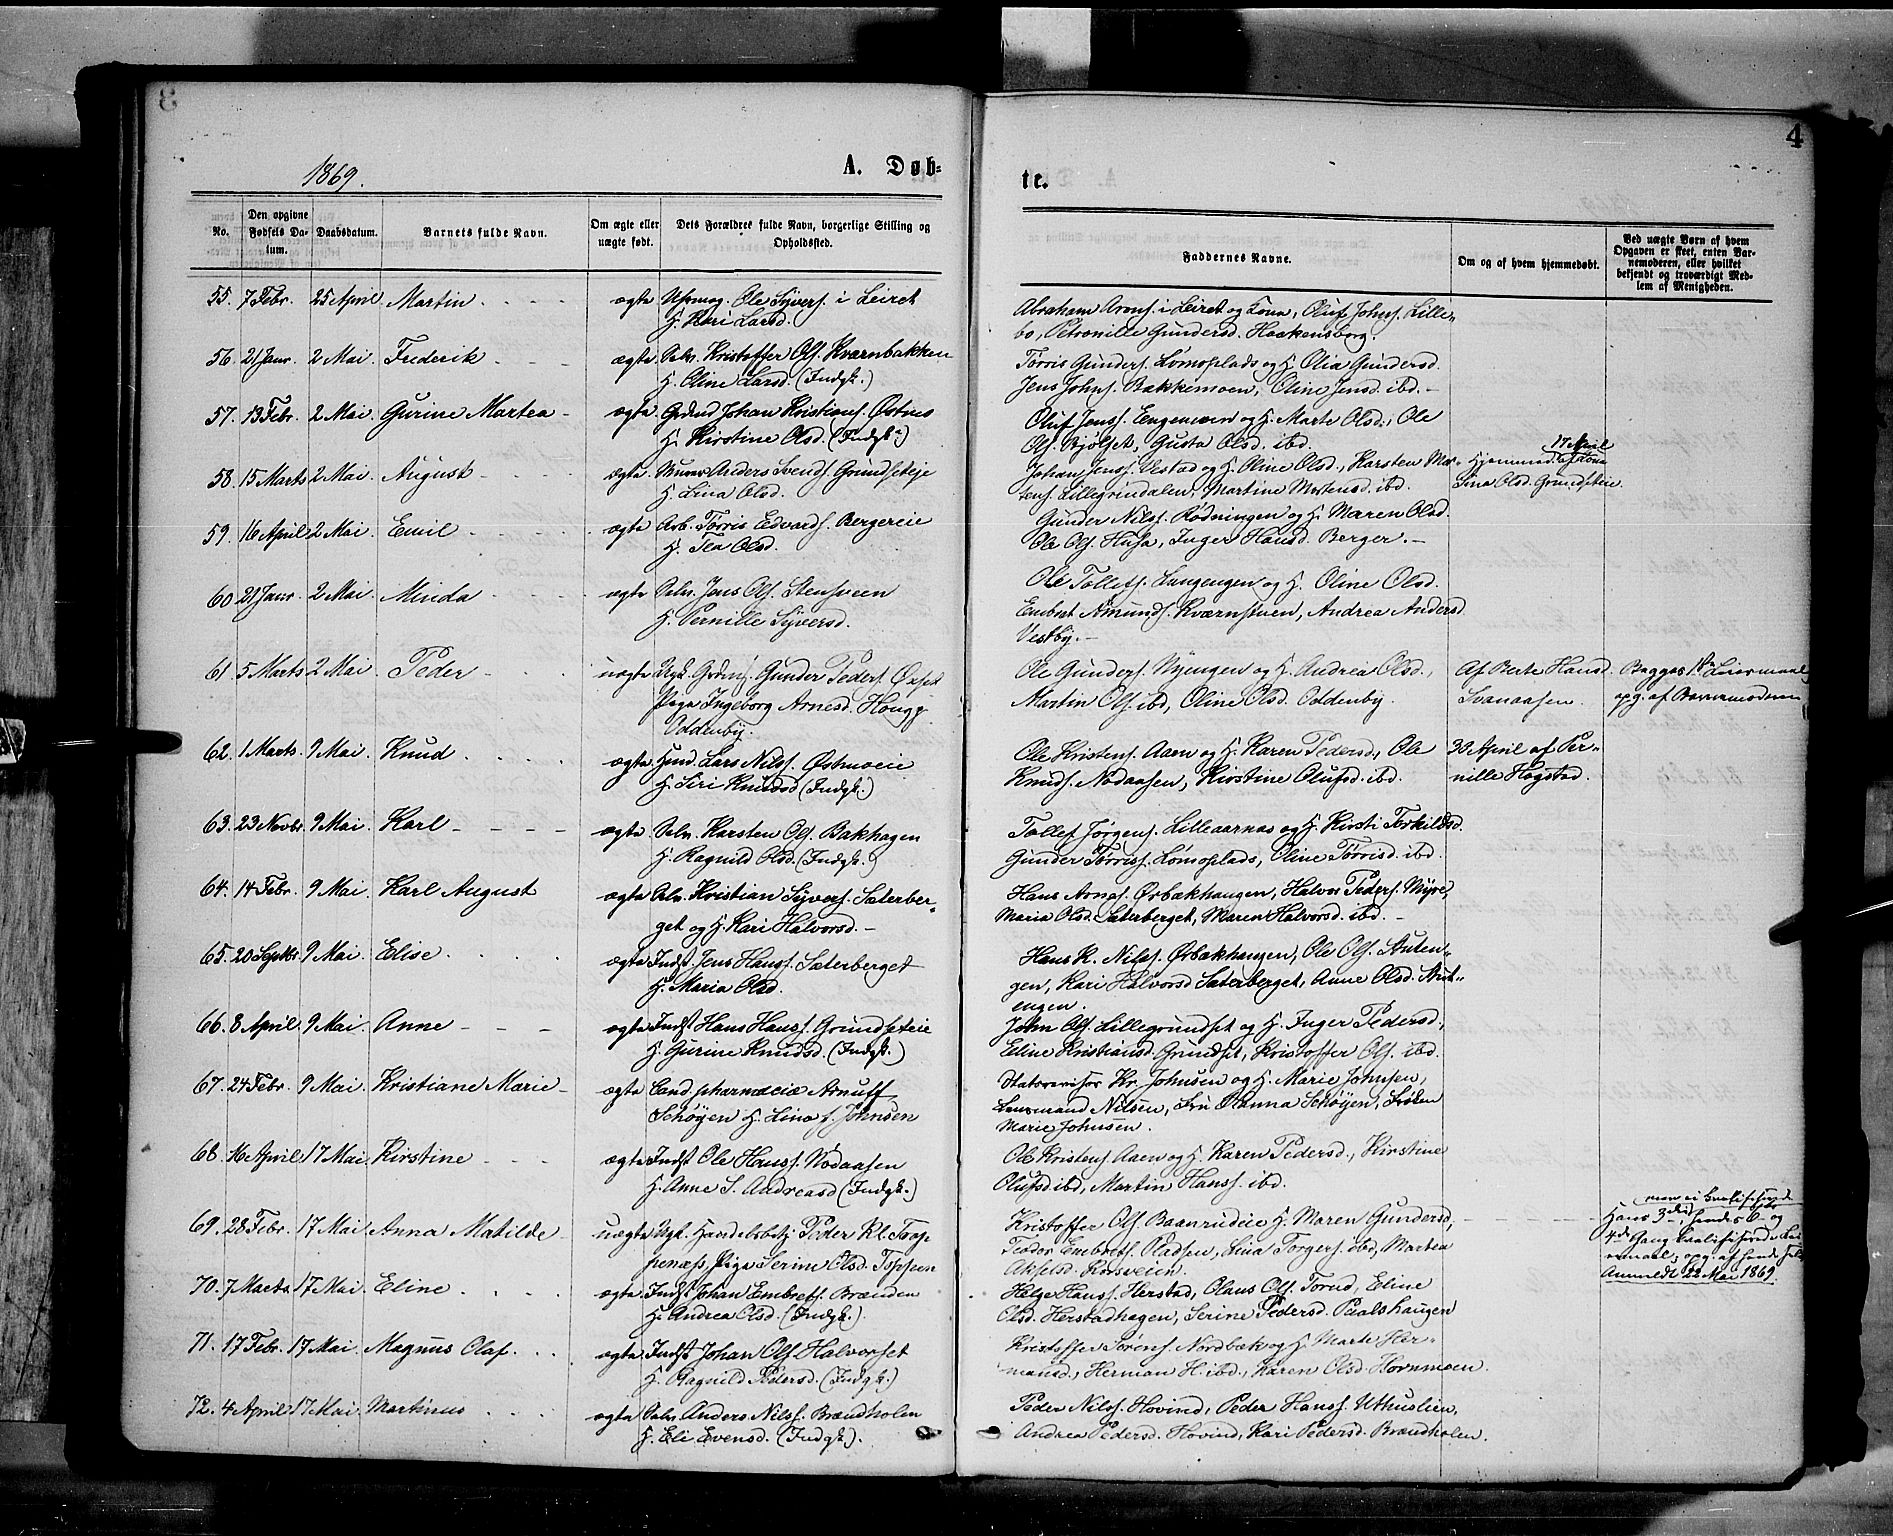 4
1869.
A. Døb-
te.
No.
Den opgivne Fødsels Datum.
Daabsdatum.
Barnets fulde Navn.
Om ægte eller uægte født.
Dets Forældres fulde Navn, borgerlige Stilling og Opholdssted.
Faddernes Navne.
Om og af hvem hjemmedøbt.
Ved uægte Børn af hvem Opgaven er skeet, enten Barnemoderen, eller hvilket bekjendt og troværdigt Medlem af Menigheden.
55. 7 Febr. 25 April Martin ægte Ole Syvers. i Leiret
H. Kari Larsd.
Abraham Arons. i Leiret og Kona, Oluf Johns. Lille-
bo, Petronille Gundersd. Haakensborg.
56. 21 Janr. 2 Mai Frederik ægte Selv. Kristoffer Ols. Kværnbakken
H. Oline Larsd. (Indgk.)
Tørris Gunders. Lomoplads og H. Olia Gundersd.
Jens Johns. Bakkemoen, Oline Jensd. ibd.
57. 13 Febr. 2 Mai. Gurine Martea ægte Grdmd Johan Kristians. Østmo
H. Kirstine Olsd. (Indgk.)
Oluf Jens. Engemoen og H. Marte Olsd., Ole
Ols. Bjølset, Gusta Olsd. ibd.
58. 15 Marts 2 Mai. August ægte Murer Anders Svends. Grundseteje
H. Lina Olsd.
Johan Jenss. Vestad og H. Oline Olsd., Karsten Mor-
tens. Lillegrindalen, Martine Mortensd. ibd.
Hjemmed. 17 April af
Lina Olsd. Grundseteie.
59. 16 April 2 Mai. Emil ægte Arb. Tørris Edvards. Bergereie
H. Olsd.
Gunder Nilss. Rødningen og H. Maren Olsd.
Ole Ols. Husa, Inger Hansd. Berger.
60 21 Janr 2 Mai. Minda ægte Selv. Jens Ols. Stensveen
H. Pernille Syversd.
Ole Tollefs. Langengen og H. Oline Olsd.
Embret Amunds. Kværnstuen, Andrea Andersd
Vestby.
61 5 Marts 2 Mai. Peder uægte Ugk. Gunder Peders. Øxset
Pige Ingeborg Arnesd. Hougg.
Oddenby.
Ole Gunders. Nyengen og H. Andrea Olsd.,
Martin Ols. ibd, Oline Olsd. Oddenby.
Af Berte Hansd.
Svenaasen.
Begges 1ste Leiermaal,
opg. af Barnemoderen
62. 1 Marts. 9 Mai. Knud ægte Lars Nilss. Østmoeie
H. Siri Knudsd (Indgk.)
Ole Kristens. Aaen og H. Karen Pedersd., Ole
Knuds. Nodaasen, Kirstine Olufsd. ibd.
30 April af Per-
nille Hogstad.
63. 23 Novbr. 9 Mai. Karl ægte Selv. Karsten Ols. Bakhagen
H. Ragnild Olsd. (Indgk.)
Tollef Jørgens. Lilleaarnas og H. Kirsti Torkildsd.
Gunder Tørriss. Lomoplads, Oline Tørrisd. ibd.
64. 14 Febr. 9 Mai. Karl August ægte Selv. Kristian Syvers. Sæterber-
get og H. Kari Halvorsd.
Hans Arnes. Ørbækhaugen, Halvor Peders. Myre,
Maria Olsd. Sæterberget, Maren Halvorsd. ibd.
65. 20 Septbr. 9 Mai. Elise ægte Indst Jens Hanss. Sæterberget
H. Maria Olsd.
Hans K. Nilss. Ørbækhaugen, Ole Ols. Stuten-
gen, Kari Halvorsd Sæterberget, Anne Olsd. Stut-
engen.
66. 8 April. 9 Mai. Anne ægte Indst Hans Hanss. Grundseteie
H. Gurine Knudsd. (Indgk.)
John Ols. Lillegrundset og H. Inger Pedersd.,
Eline Kristiansd. Grundset, Kristoffer Ols. ibd.
67. 24 Febr. 9 Mai. Kristiane Marie ægte Cand. pharmaciæ Arnuff
Schøyen H. Lina f. Johnsen
Statsrevisor Kr. Johnsen og H. Marie Johnsen,
Lensmand Nilsen, Fru Hanna Schøyen, Frøken
Marie Johnsen.
68. 16 April 17 Mai. Kirstine ægte Indst Ole Hanss. Nodaasen
H. Anne S. Andreasd (Indgk.)
Ole Kristens. Aaen og H. Karen Pedersd., Kirstine
Olufsd ibd, Martin Hanss. ibd.
69. 28 Febr. 17 Mai Anna Matilde uægte Ugk. Handelsbetj. Peder Kl.
Pige Serine Olsd. Toppen
Kristoffer Ols. Baanrudeie H. Maren Gundersd,
Teodor Embrets. Pladsen, Lina Torgers. ibd, Martea
Akselsd. Rosveien.
Hans 3die, hendes 6-
opg. af hende selv
Anmeldt 22 Mai 1869.
70. 7 Marts. 17 Mai. Eline ægte Indst Johan Embrets. Brænden
H. Andrea Olsd. (Indgk.)
Helge Hanss. Herstad, Olaus Ols. Torud, Eline
Olsd. Herstadhagen, Serine Pedersd. Paalshaugen
71. 17 Febr. 17 Mai. Magnus Olaf ægte Indst Johan Ols. Halvorset
H. Ragnild Pedersd. (Indgk.)
Kristoffer Sørens. Nordbæk og H. Marte Her-
mansd., Herman H. ibd., Karen Olsd. Hornmoen.
72. 4 April 17 Mai. Martinus ægte Selv. Anders Nilss. Brændholen
H. Eli Evensd. (Indgk.)
Peder Nilss. Hovind, Peder Hanss. Uthuslien,
Andrea Pedersd. Hovind, Kari Pedersd. Brændholen.